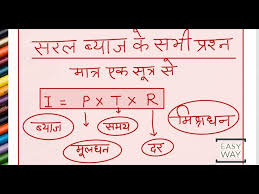 सरल ब्याज के सभी प्रश्न
मात्र एक सूत्र से
I = P × T × R
ब्याज
समय
मिश्रधन
मूलधन
दर
EASY
WAY